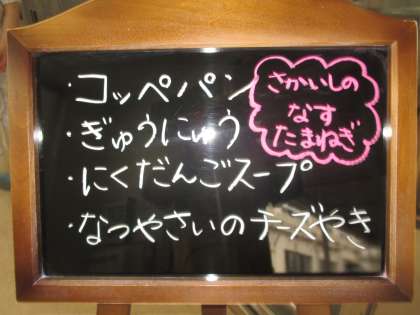 ・コッペパン
・ぎゅうにゅう
・にくだんごスープ
・なつやさいのチーズやき
さかいしの
なす
たまねぎ